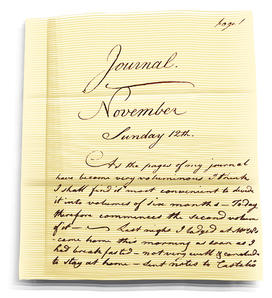 Page 1
Journal.
November
Sunday 12th.
As the pages of my journal
have become very voluminous I think
I shall find it most convenient to divide
it into volumes of six months - Today
therefore commences the second volume
of it - Last night I lodged at
came home this morning as soon as I
had breakfasted - not very well & concluded
to stay at home - sent notes to